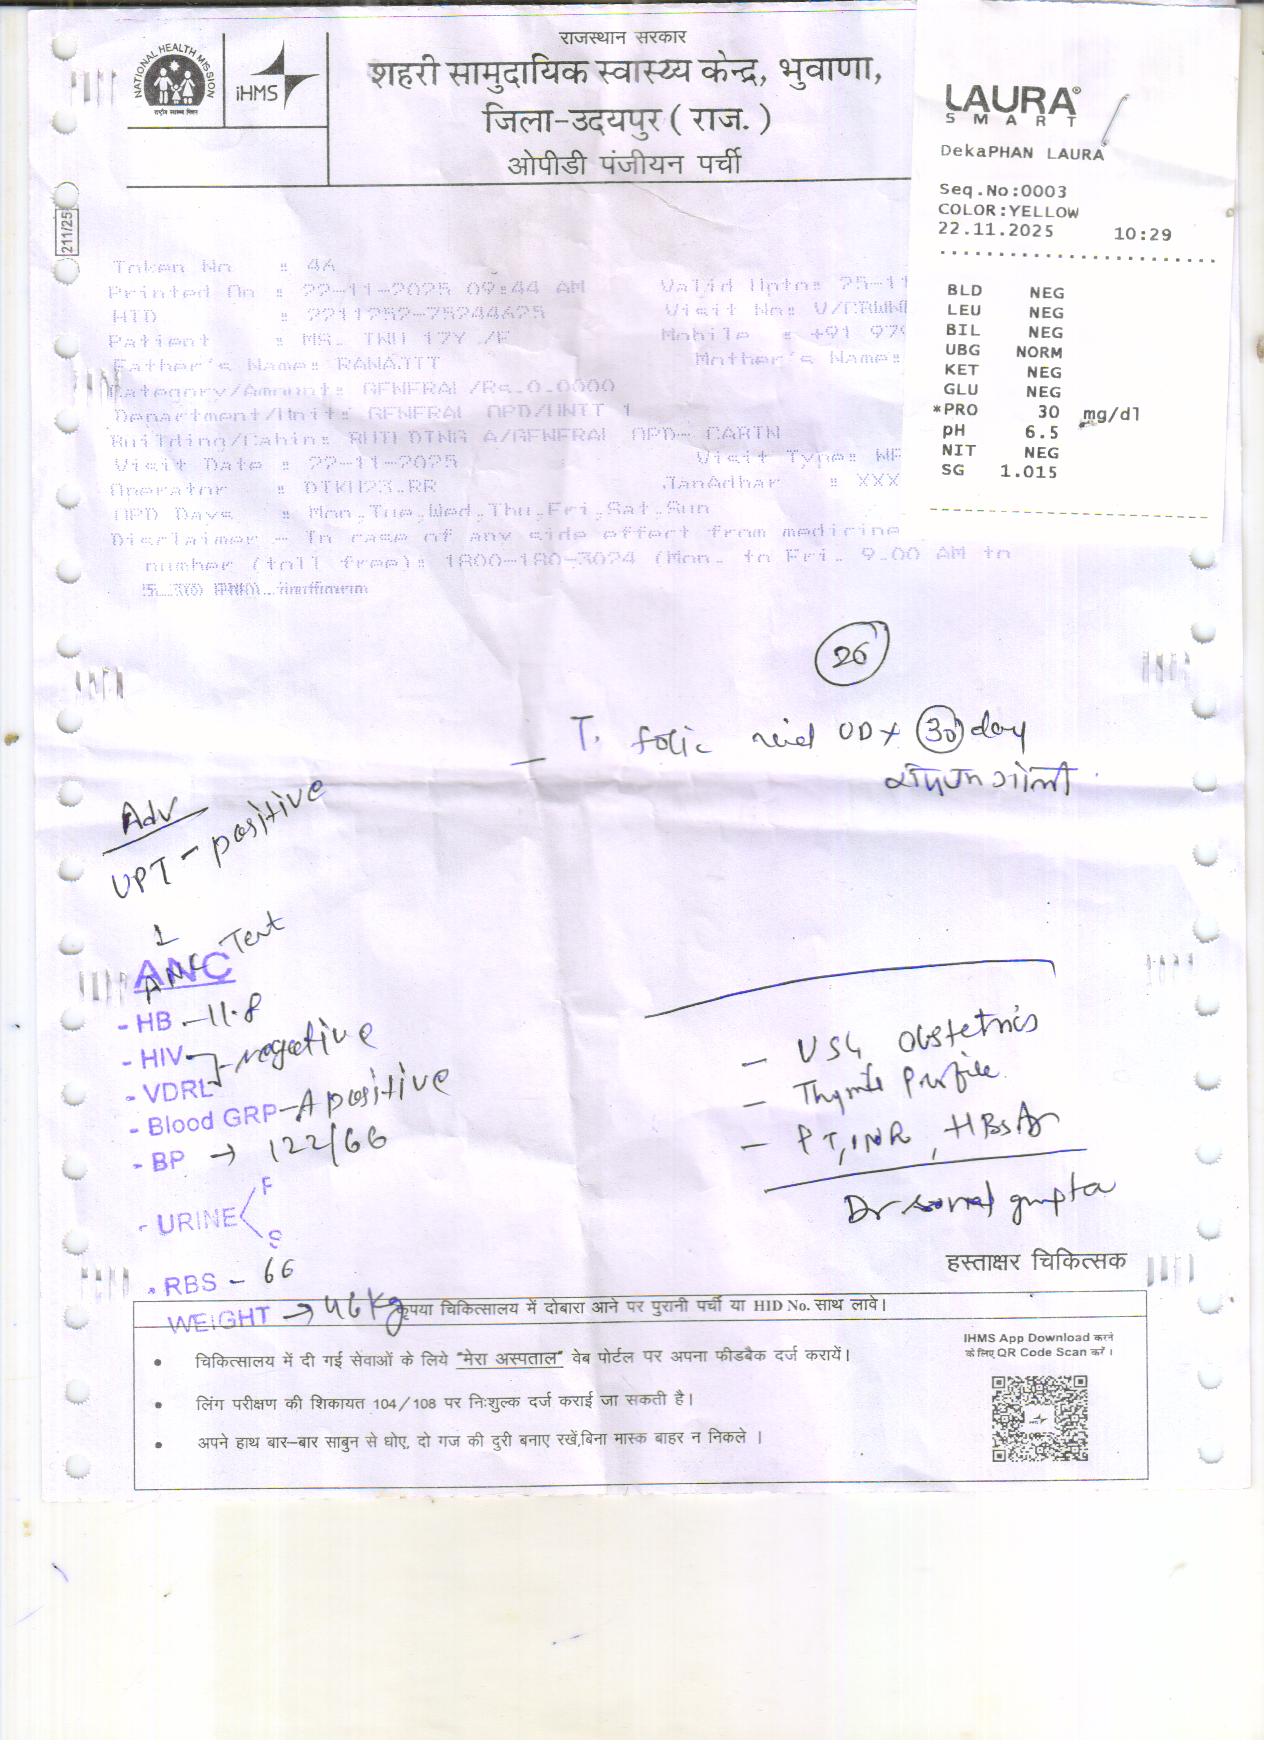 NATIONAL HEALTH MISSION
राष्ट्रीय स्वास्थ्य मिशन
iHMS
राजस्थान सरकार
शहरी सामुदायिक स्वास्थ्य केन्द्र, भुवाणा,
जिला-उदयपुर ( राज. )
ओपीडी पंजीयन पर्ची
211/25
LAURA®
SMART
DekaPHAN LAURA
Seq.No:0003
COLOR:YELLOW
22.11.2025 10:29
BLD NEG
LEU NEG
BIL NEG
UBG NORM
KET NEG
GLU NEG
*PRO 30 mg/dl
pH 6.5
NIT NEG
SG 1.015
Token No :
Printed On : 22-11-2025 09:44 AM Valid Upto: 25-11
HID :
Patient : MS. /F Mobile : +91
Father's Name: Mother's Name:
Category/Amount: GENERAL/Rs.0.0000
Department/Unit: GENERAL OPD/UNIT 1
Building/Cabin: BUILDING A/GENERAL OPD- CABIN
Visit Date : 22-11-2025 Visit Type:
Operator : JanAdhar : XXX
OPD Days : Mon,Tue,Wed,Thu,Fri,Sat,Sun
Disclaimer - In case of any side effect from medicine
number (toll free): 1800-180-3024 (Mon. to Fri. 9.00 AM to
26
- T. folic acid OD x 30 day
Adv
UPT - positive
1
ANC Test
ANC
- HB - 11.8
- HIV
- VDRL negative
- Blood GRP - A positive
- BP → 122/66
- URINE P
S
- RBS - 66
WEIGHT → 46 kg
- USG Obstetrics
- Thyroid Profile
- PT, INR, HBsAg
Dr gupta
हस्ताक्षर चिकित्सक
कृपया चिकित्सालय में दोबारा आने पर पुरानी पर्ची या HID No. साथ लावे।
• चिकित्सालय में दी गई सेवाओं के लिये "मेरा अस्पताल" वेब पोर्टल पर अपना फीडबैक दर्ज करायें।
• लिंग परीक्षण की शिकायत 104/108 पर निःशुल्क दर्ज कराई जा सकती है।
• अपने हाथ बार-बार साबुन से धोए, दो गज की दुरी बनाए रखें,बिना मास्क बाहर न निकले ।
IHMS App Download करने
के लिए QR Code Scan करें ।